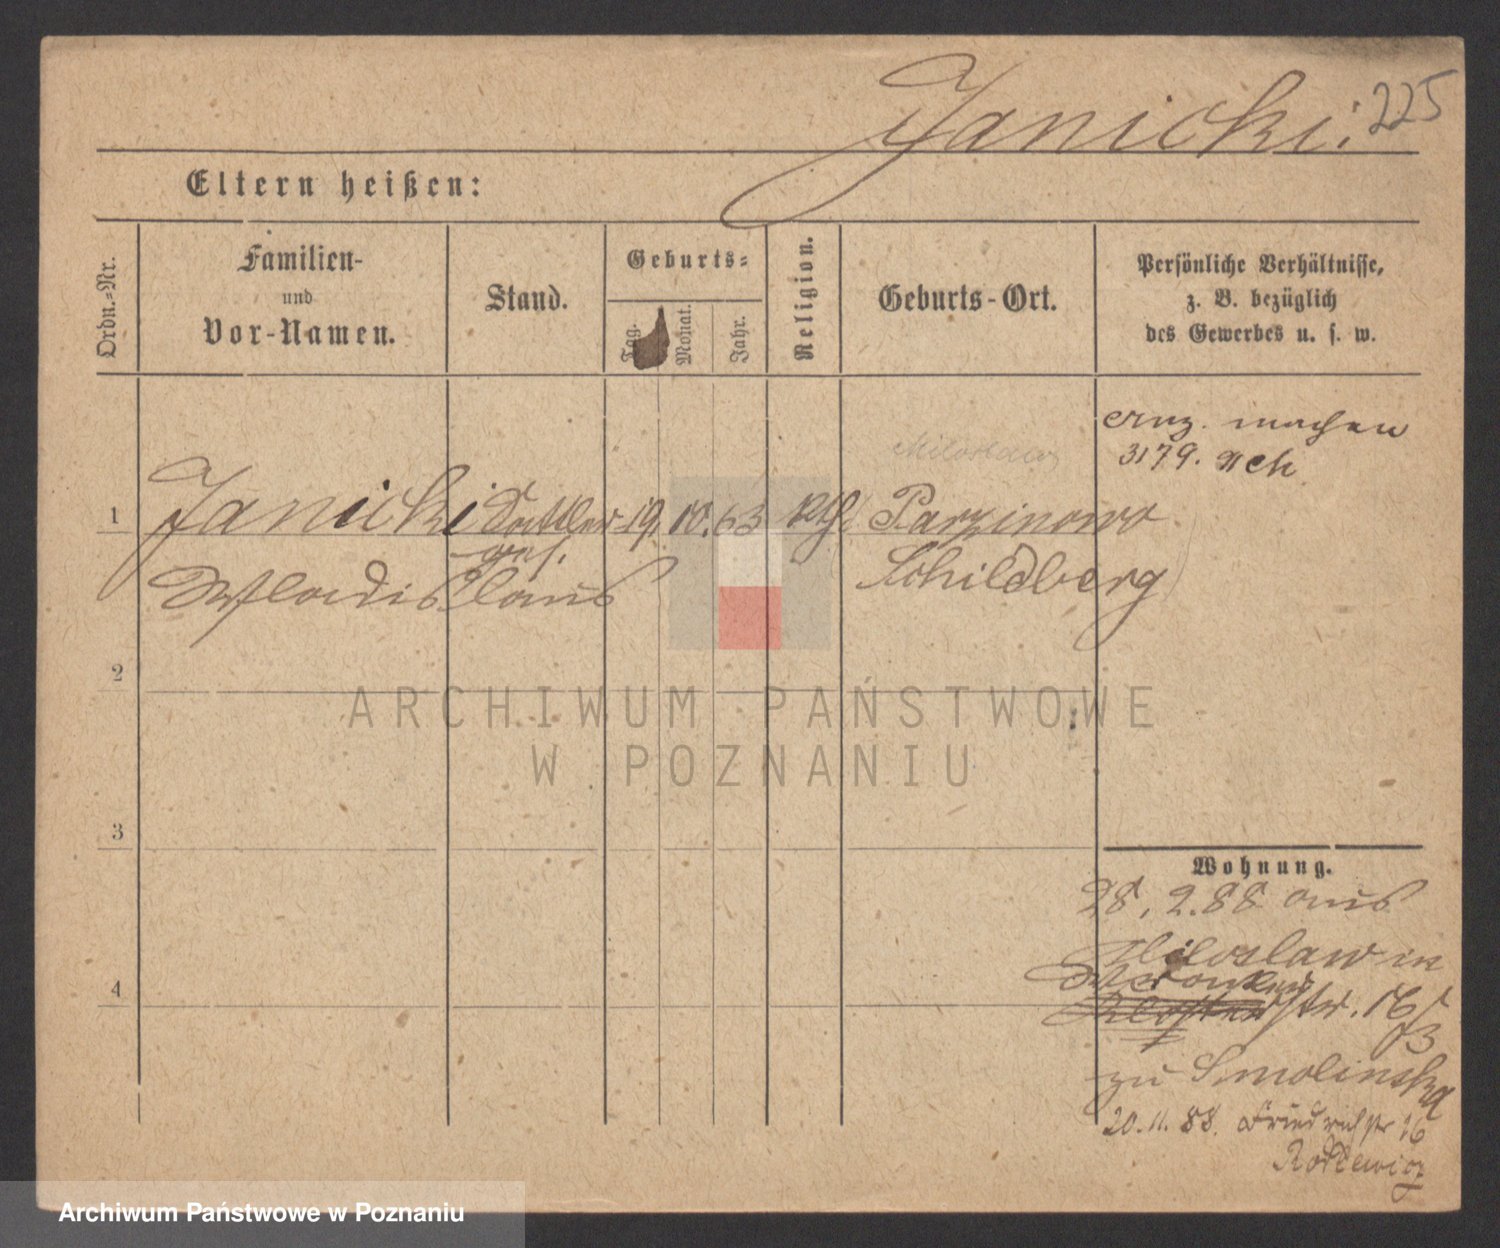 Janicki.
225
Eltern heißen:
Ordn.-Nr.
Familien-
und
Vor-Namen.
Stand.
Geburts-
Tag.
Monat.
Jahr.
Religion.
Geburts-Ort.
Persönliche Verhältnisse,
z. B. bezüglich
des Gewerbes u. s. w.
machen
3179.
Miloslaw
1 Janicki Sattler 19. 10. 63 Kth Parzinowo
ges. Schildberg
Wladislaus
2
3
4
Wohnung.
28. 2. 88 aus
Miloslaw in
Wronker
Kloster str. 16/
/3
zu Smolinska
20. 11. 88. Friedrichstr 16
ARCHIWUM PAŃSTWOWE
W POZNANIU
Archiwum Państwowe w Poznaniu